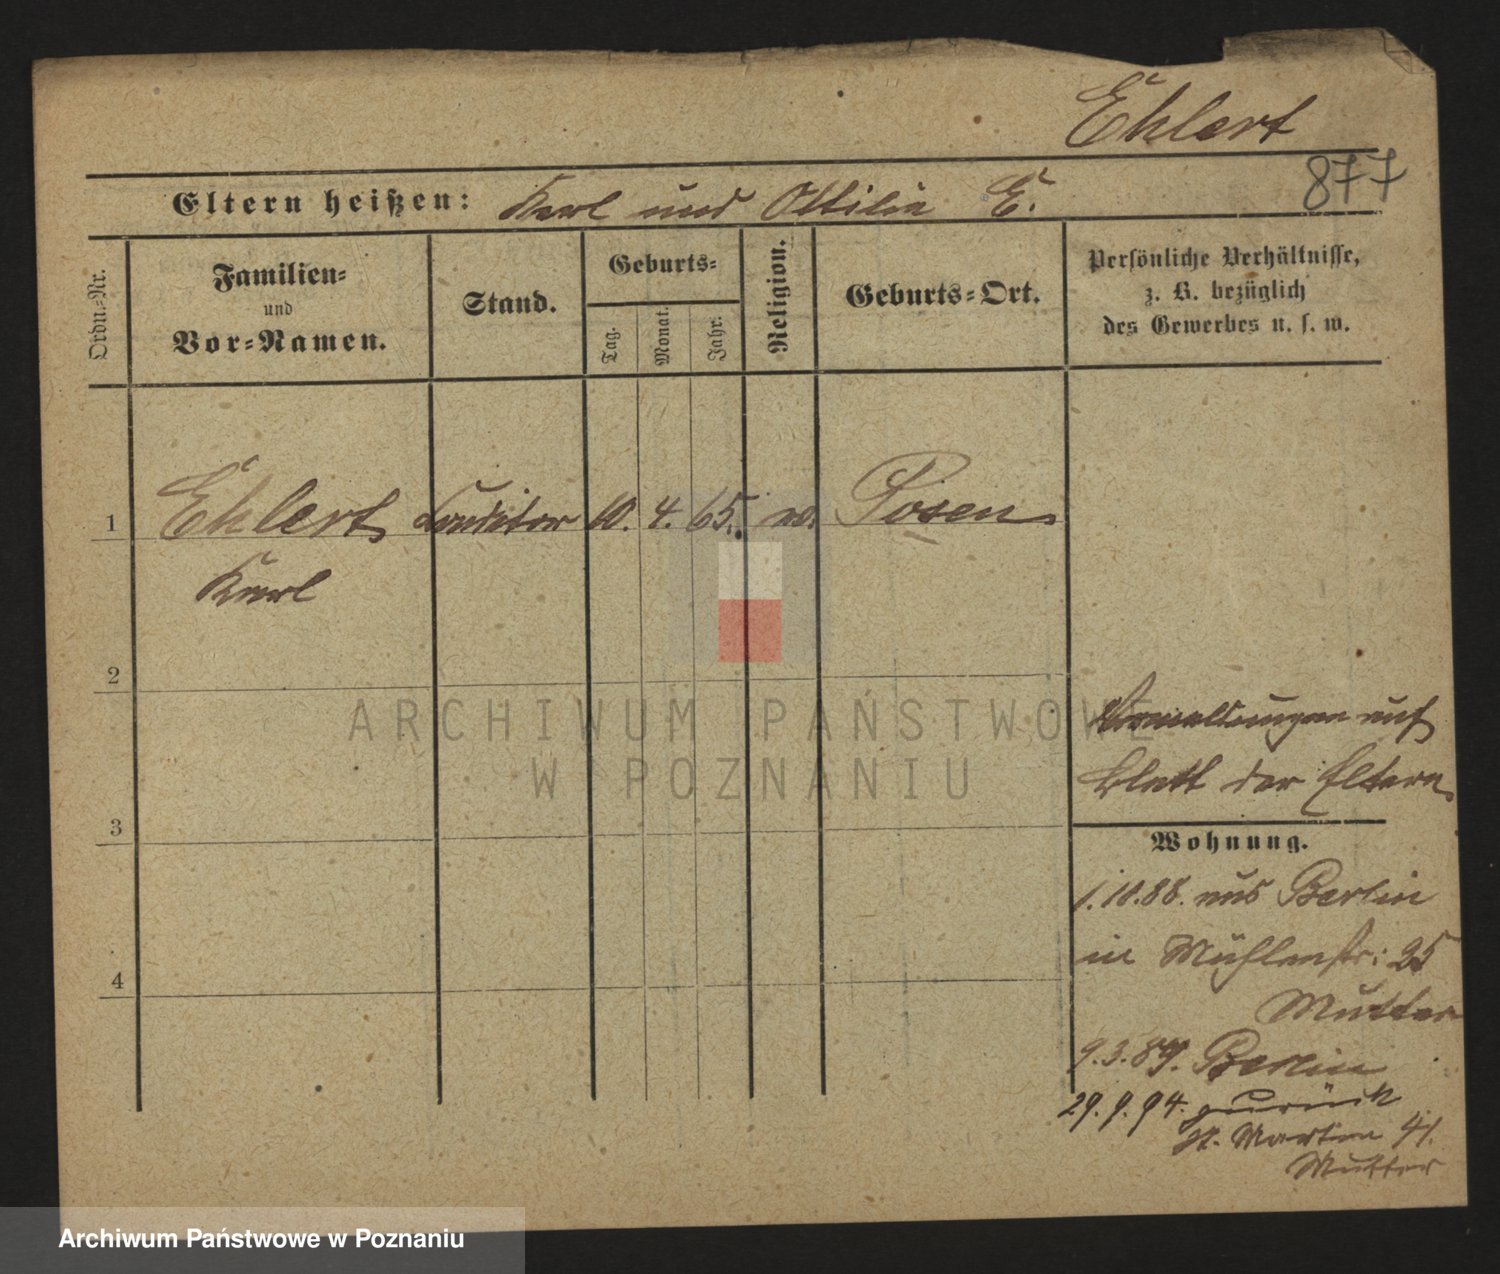 Ehlert
877
Eltern heißen: Karl und Ottilie E.
Ordn.-Nr.
Familien-
und
Vor-Namen.
Stand.
Geburts-
Tag.
Monat.
Jahr.
Religion.
Geburts-Ort.
Persönliche Verhältnisse,
z. B. bezüglich
des Gewerbes u. s. w.
1 Ehlert Conditor 10. 4. 65. ev. Posen
Karl
2
3
4
auf
Blatt der Eltern
Wohnung.
1.10.88. aus Berlin
in Mühlenstr: 25
Mutter
9.3.89. Berlin
29.9.94. zurück
St. Martin 41.
Mutter
ARCHIWUM PAŃSTWOWE
W POZNANIU
Archiwum Państwowe w Poznaniu